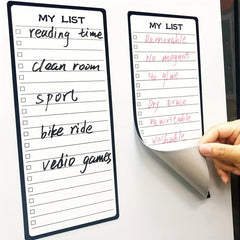 MY LIST
reading time
clean room
sport
bike ride
vedio games
MY LIST
Removable
No magnet
No glue
Dry erase
rewritable
washable